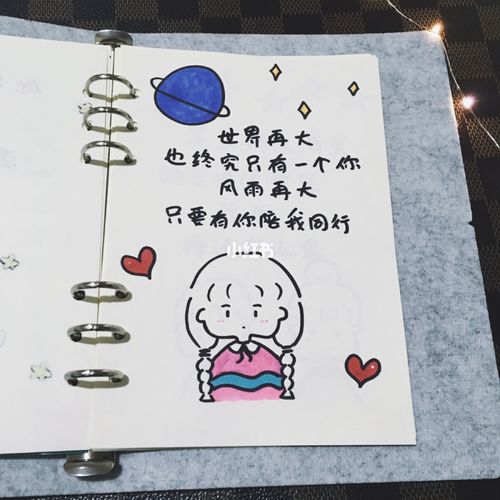 世界再大
也终究只有一个你
风雨再大
只要有你陪我同行
小红书